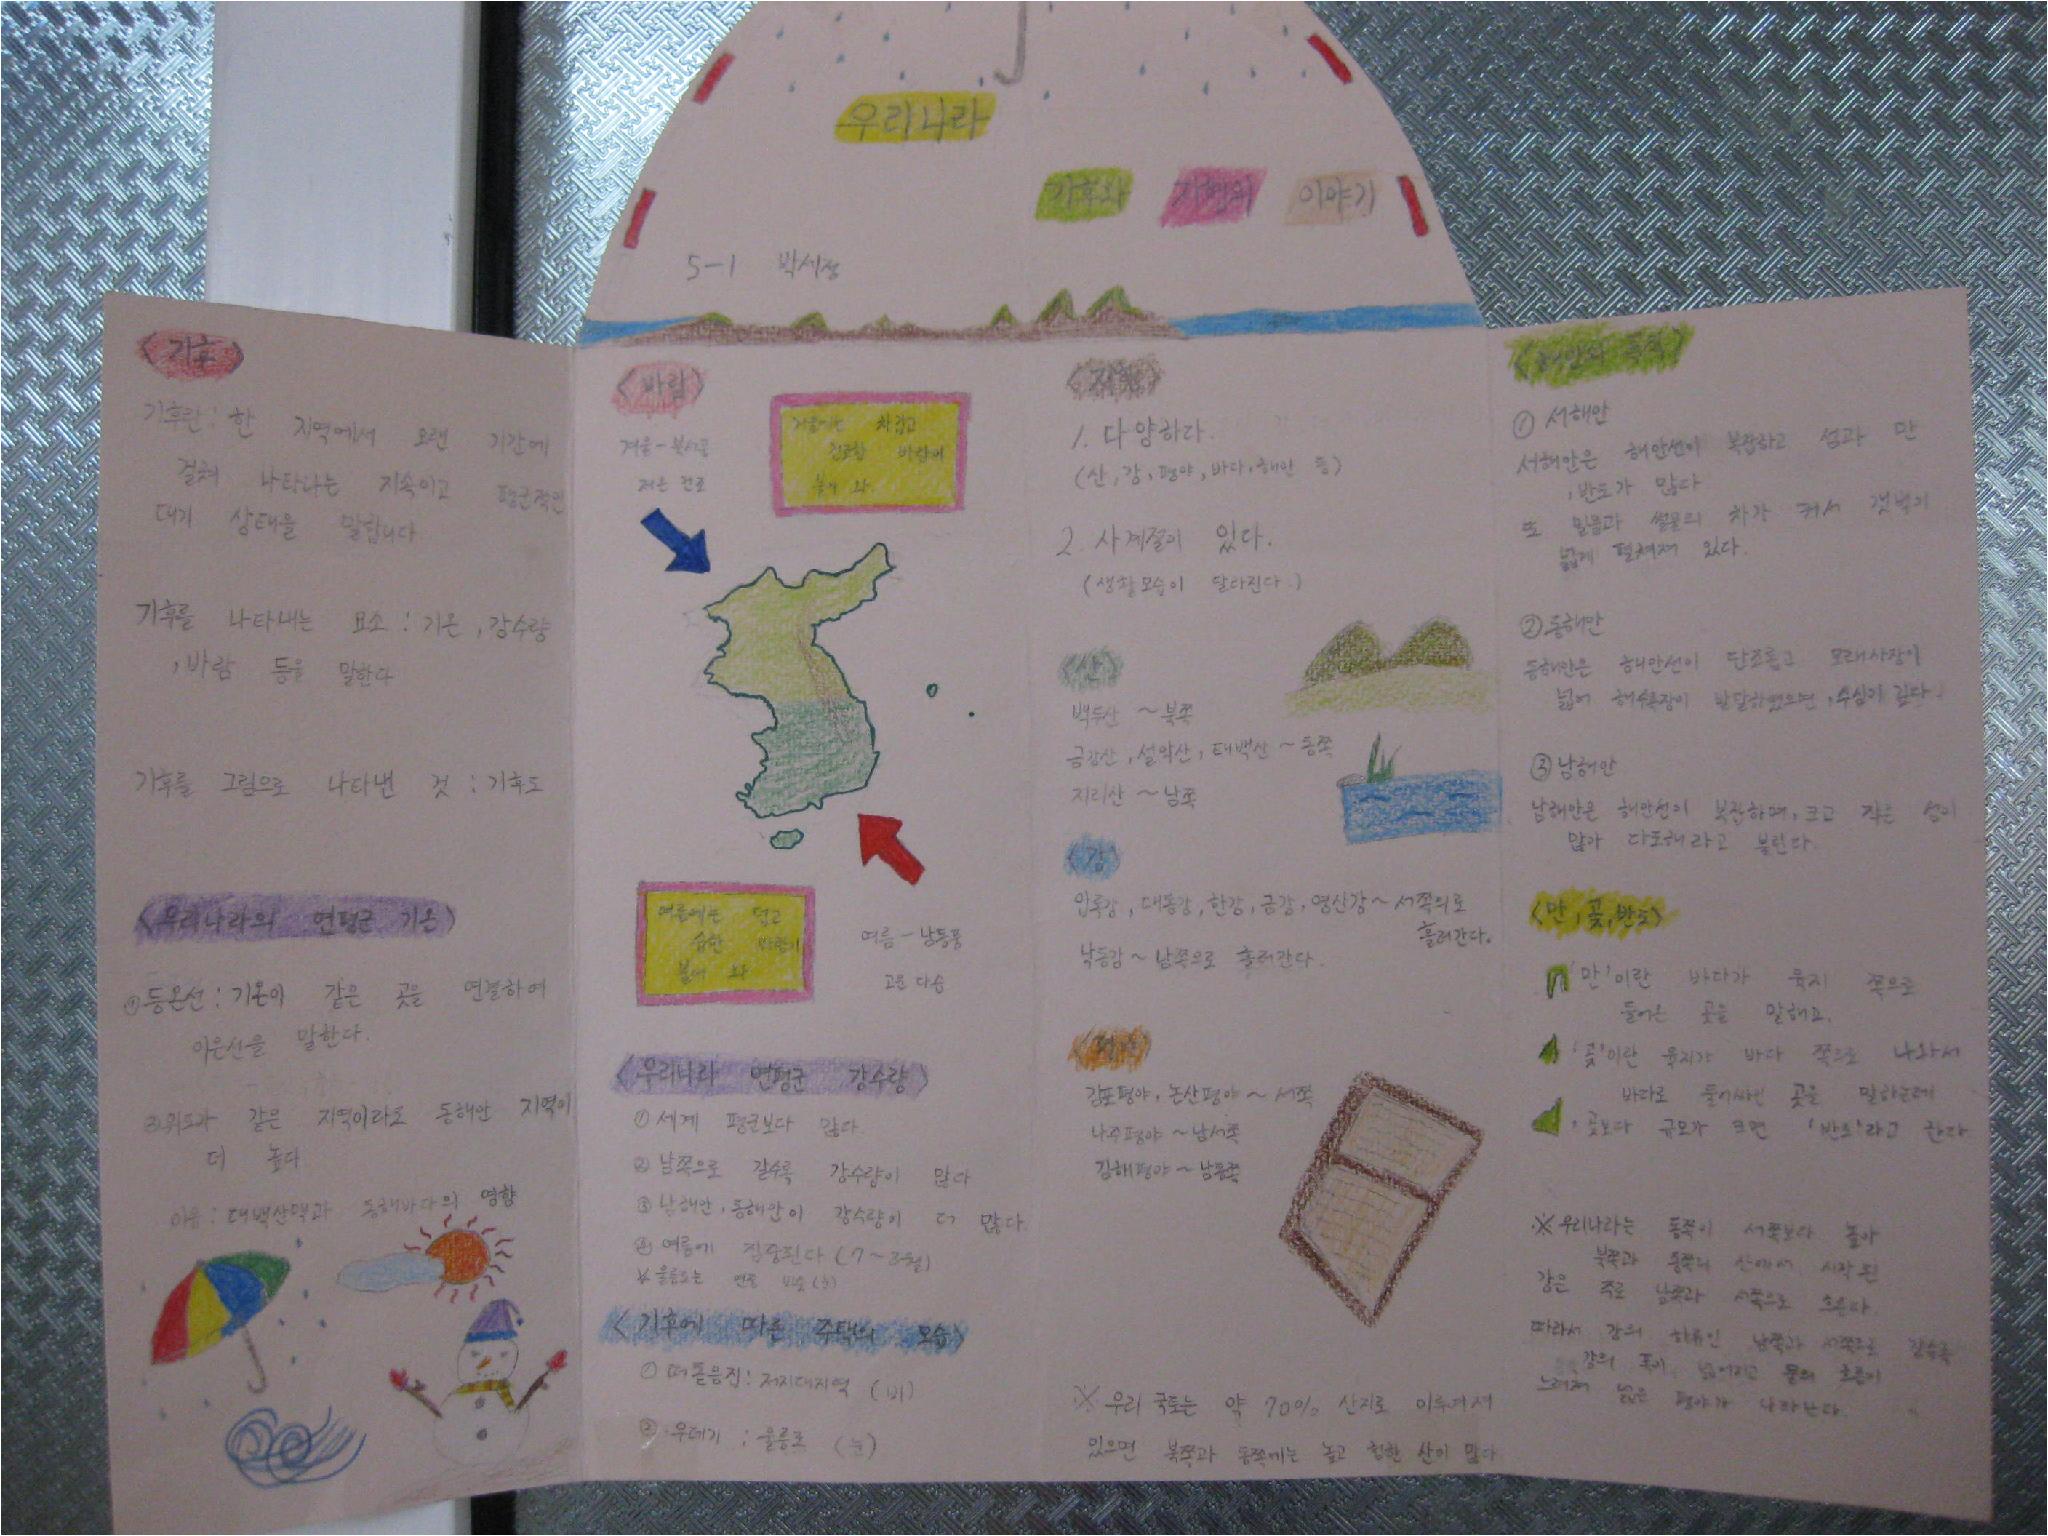 우리나라
기후와 지형의 이야기
5-1 박세정
<기후>
기후란 : 한 지역에서 오랜 기간에
걸쳐 나타나는 지속이고 평균적인
대기 상태를 말합니다
기후를 나타내는 요소 : 기온, 강수량
, 바람 등을 말한다
기후를 그림으로 나타낸 것 : 기후도
<우리나라의 연평균 기온>
① 등온선 : 기온이 같은 곳을 연결하여
이은선을 말한다.
② 위도가 같은 지역이라도 동해안 지역이
더 높다
이유 : 태백산맥과 동해바다의 영향
<바람>
겨울 - 북서풍
저온 건조
겨울에는 차갑고
건조한 바람이
불어 와.
여름에는 덥고
습한 바람이
불어 와
여름 - 남동풍
고온 다습
<우리나라 연평균 강수량>
① 세계 평균보다 많다.
② 남쪽으로 갈수록 강수량이 많다
③ 남해안, 동해안이 강수량이 더 많다.
④ 여름에 집중된다 (7~8월)
※ 울릉도는
<기후에 따른 주택의 모습>
① 터돋음집 : 저지대지역 (비)
② 우데기 : 울릉도 (눈)
<지형>
1. 다양하다.
(산, 강, 평야, 바다, 해안 등)
2. 사계절이 있다.
(생활모습이 달라진다.)
<산>
백두산 ~ 북쪽
금강산, 설악산, 태백산 ~ 동쪽
지리산 ~ 남쪽
<강>
압록강, 대동강, 한강, 금강, 영산강 ~ 서쪽의로
흘러간다.
낙동강 ~ 남쪽으로 흘러간다.
<평야>
김포평야, 논산평야 ~ 서쪽
나주평야 ~ 남서쪽
김해평야 ~ 남동쪽
※ 우리 국토는 약 70% 산지로 이루어져
있으면 북쪽과 동쪽에는 높고 험한 산이 많다
<해안의 특징>
① 서해안
서해안은 해안선이 복잡하고 섬과 만
, 반도가 많다
또 밀물과 썰물의 차가 커서 갯벌이
넓게 펼쳐져 있다.
② 동해안
동해안은 해안선이 단조롭고 모래사장이
넓어 해수욕장이 발달하였으면, 수심이 깊다.
③ 남해안
남해안은 해안선이 복잡하며, 크고 작은 섬이
많아 다도해라고 불린다.
<만, 곶, 반도>
'만'이란 바다가 육지 쪽으로
들어온 곳을 말해요.
'곶'이란 육지가 바다 쪽으로 나와서
바다로 둘러싸인 곳을 말하는데
곶보다 규모가 크면 '반도'라고 한다
※ 우리나라는 동쪽이 서쪽보다 높아
북쪽과 동쪽의 산에서 시작된
강은 주로 남쪽과 서쪽으로 흐른다.
따라서 강의 하류인 남쪽과 서쪽으로 갈수록
강의 폭이 넓어지고 물의 흐름이
느려져 넓은 평야가 나타난다.